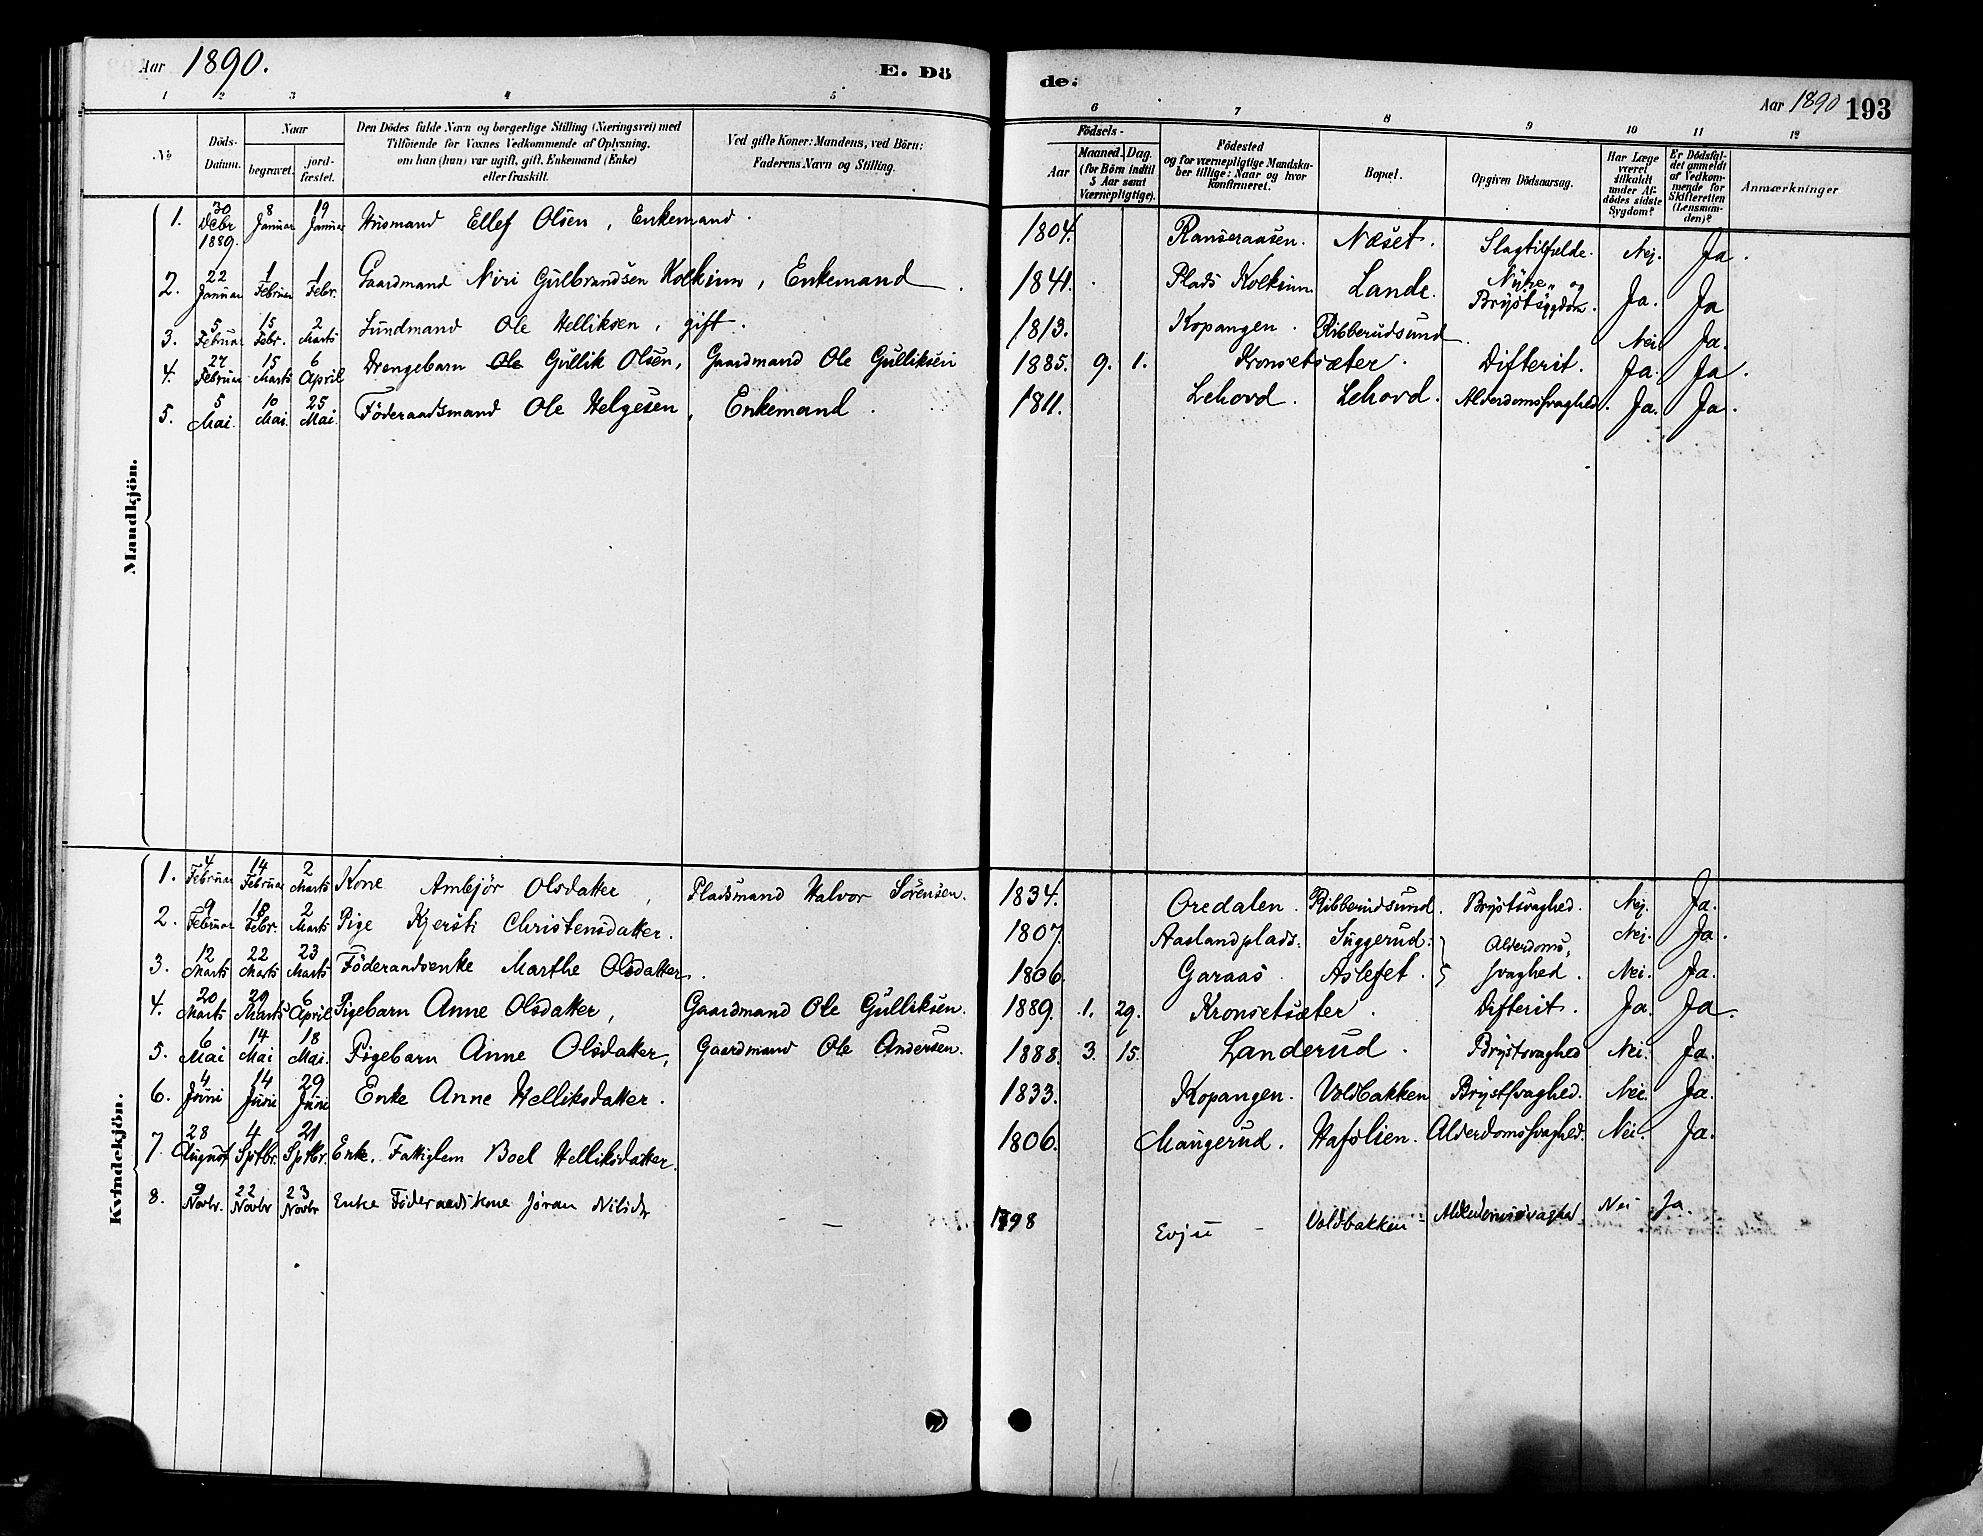 Aar 1890.
E. Dö
de:
Aar 1890 193
1 2 3 4 5 6 7 8 9 10 11 12
No
Döds-
Datum.
Naar
begravet.
jord-
fæstet.
Den Dödes fulde Navn og borgerlige Stilling (Næringsvei) med
Tilföiende for Voxnes Vedkommende af Oplysning,
om han (hun) var ugift, gift, Enkemand (Enke)
eller fraskilt.
Ved gifte Koner: Mandens, ved Börn:
Faderens Navn og Stilling.
Födsels-
Aar
Maaned. Dag.
(for Börn indtil
5 Aar samt
Værnepligtige).
Födested
og for værnepligtige Mandska-
ber tillige: Naar og hvor
konfirmeret.
Bopæl.
Opgiven Dödsaarsag.
Har Læge
været
tilkaldt
under Af-
dødes sidste
Sygdom?
Er Dödsfal-
det anmeldt
af Vedkom-
mende for
Skifteretten
(Lensman-
den)?
Anmærkninger
Mandkjön.
1. 30 Debr 1889. 8 Januar 19 Januar Husmand Ellef Olsen, Enkemand. 1804. Ranseraasen. Næset. Slagtilfælde. Nej. Ja.
2. 22 Januar 1 Februar 1 Febr. Gaardmand Niri Gulbrandsen Kolkinn, Enkemand. 1841. Plads Kolkinn. Lande. Nyre- og Brystsygdom. Ja. Ja
3. 5 Februar 15 Febr. 2 Marts Lundmand Ole Helliksen, gift. 1813. Kopangen. Ribberudsund. Nei. Ja.
4. 27 Februar 15 Marts 6 April Drengebarn Ole Gullik Olsen, Gaardmand Ole Gulliksen 1885. 9. 1. Kronsetsæter. Difterit. Ja. Ja.
5. 5 Mai. 10 Mai. 25 Mai. Föderaadsmand Ole Helgesen, Enkemand. 1811. Lehovd. Lehovd. Alderdomssvaghed. Ja. Ja.
Kvindekjön.
1. 4 Februar 14 Februar 2 Marts Kone Ambjör Olsdatter, Pladsmand Halvor Sörensen. 1834. Oredalen. Ribberudsund. Brystsvaghed. Nej. Ja.
2. 9 Februar 18 Febr. 2 Marts Pige Kjersti Christensdatter. 1807. Aaslandplads. Suggerud. Alderdoms- Nei. Ja.
3. 12 Marts 22 Marts 23 Marts Föderaadsenke Marthe Olsdatter. 1806. Garaas. Aslefet. svaghed. Nei. Ja.
4. 20 Marts 29 Marts 6 April Pigebarn Anne Olsdatter, Gaardmand Ole Gulliksen. 1889. 1. 29. Kronsetsæter. Difterit. Ja. Ja.
5. 6 Mai 14 Mai 18 Mai. Pigebarn Anne Olsdatter, Gaardmand Ole Andersen. 1888. 3. 15. Landerud. Brystsvaghed Nei. Ja.
6. 4 Juni 14 Juni 29 Juni Enke Anne Helliksdatter. 1833. Kopangen. Voldbakken Brystsvaghed. Nei. Ja.
7. 28 August 4 Sptbr. 21 Sptbr. Enke. Fattiglem Boel Helliksdatter. 1806. Maugerud. Hafslien. Alderdomssvaghed. Nei. Ja.
8. 9 Novbr. 22 Novbr 23 Novbr Enke Föderaadskone Jöran Nilsdr – – 1798 Evju – Voldbakken – Alderdomssvaghed Nei Ja.